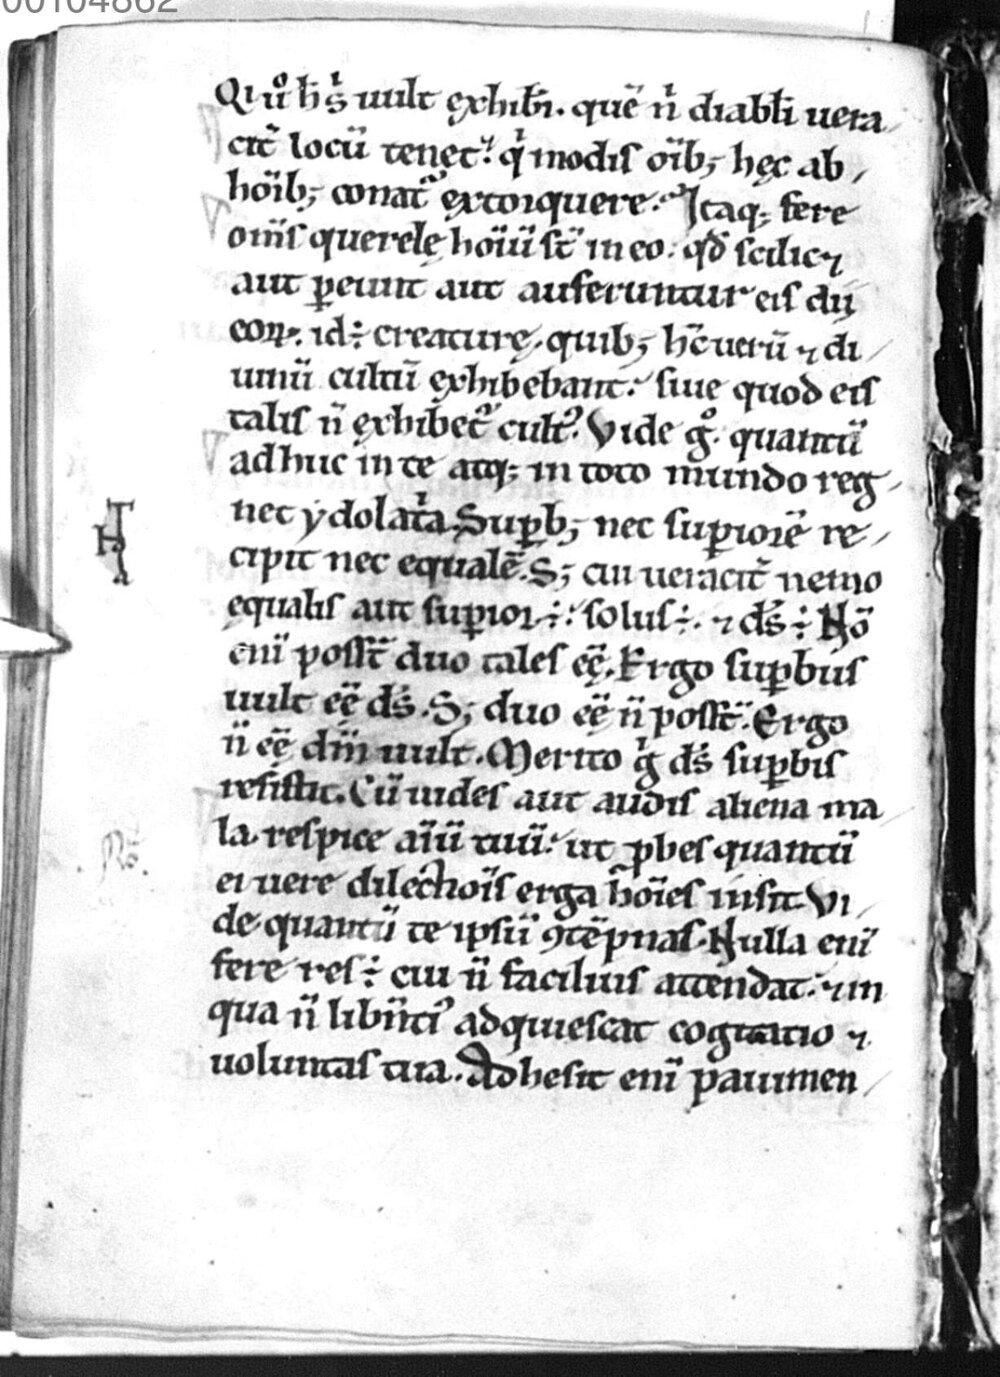 00104862
Qi ů h̄s̓ uult exhibr̄i. quē n̄ diabl̄i uera
cit̄ locū tenet? q̓ modis oīb; hęc ab
hoīb; conat᷑ extorquere. Itaq; fere
om̄s querelę hoīū st̄ in eo. qđ scilic⁊
aut ꝑeunt aut auferuntur eis dii
eoꝝ. id ÷ creaturę. quib; hc̄ uerū ⁊ di
uinū cultū exhibebant. siue quod eis
talis n̄ exhibet᷑ cult᷒. Vide g̊. quantū
adhuc in te atq; in toto mundo reg
net ydolat̓a. Suꝑb; nec suꝑiorē re
cipit nec equalē. S; cui ueracit̄ nemo
equalis aut suꝑior ÷. solus ÷. ⁊ ds̄ ÷. Nō
eni̅ posst̄ duo tales eē. Ergo suꝑbus
uult eē ds̄. S; duo eē n̄ posst̄. Ergo
n̄ eē dm̄ uult. Merito g̓ ds̄ suꝑbis
resistit. Cū uides aut audis aliena ma
la. respice aīū tuū. ut ꝓbes quantū
ei uere dilectiōis erga hōies insit. Vi
de quantū te ipsū ꝯtēpnas. Nulla eni̅
fere res ÷ cui n̄ facilius attendat. ⁊ in
qua n̄ libn̄ti᷒ adquiescat cogitatio ⁊
uoluntas tua. Adhesit eni̅ pauimen
No.